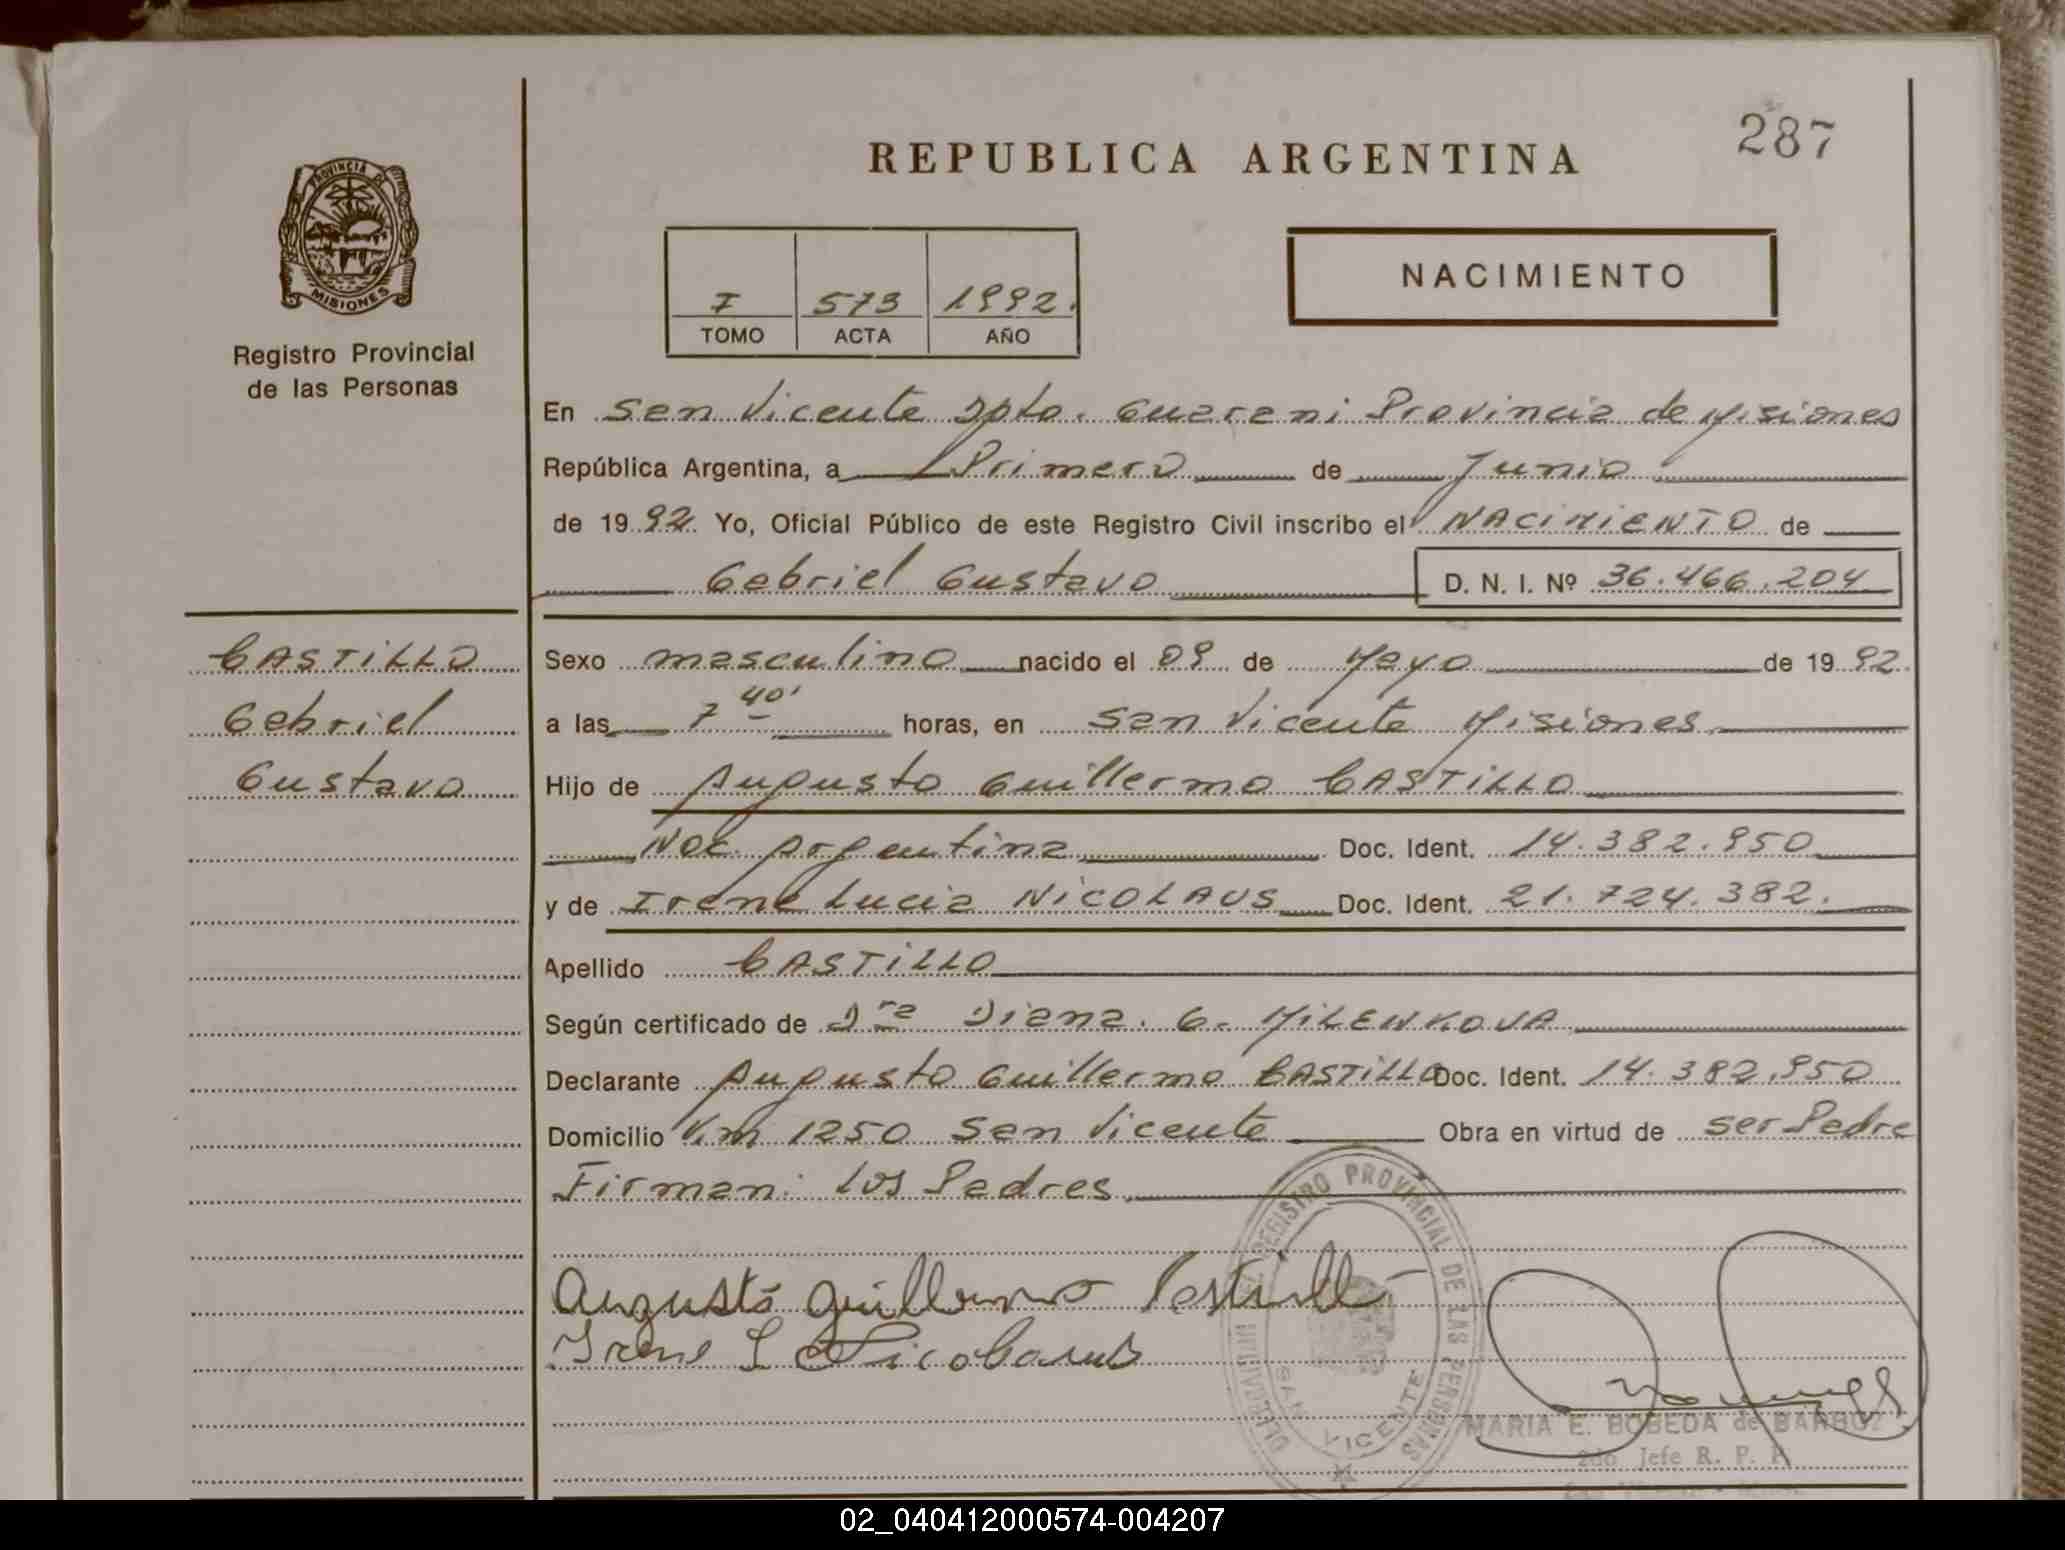 287
REPUBLICA ARGENTINA
PROVINCIA DE
MISIONES
Registro Provincial
de las Personas
NACIMIENTO
I 573 1992.
TOMO ACTA AÑO
En San Vicente Dpto. Guarani Provincia de Misiones
República Argentina, a Primero de Junio
de 1992 Yo, Oficial Público de este Registro Civil inscribo el NACIMIENTO de
Gabriel Gustavo D. N. I. Nº 36.466.204
CASTILLO
Gabriel
Gustavo
Sexo masculino nacido el 09 de Mayo de 1992
a las 7 40' horas, en San Vicente Misiones
Hijo de Augusto Guillermo CASTILLO
Nac. Argentina Doc. Ident. 14.382.950
y de Irene Lucia NICOLAUS Doc. Ident. 21.724.382.
Apellido CASTILLO
Según certificado de Dra Diana. G. MILENKOVA
Declarante Augusto Guillermo CASTILLO Doc. Ident. 14.382.950
Domicilio Km 1250 San Vicente Obra en virtud de ser Padre
Firman: Los Padres
Augusto Guillermo Castillo
Irene L Nicolaus
REGISTRO PROVINCIAL DE LAS PERSONAS
SAN VICENTE
MARIA E. BOBEDA de
2do Jefe R. P. P.
02_040412000574-004207